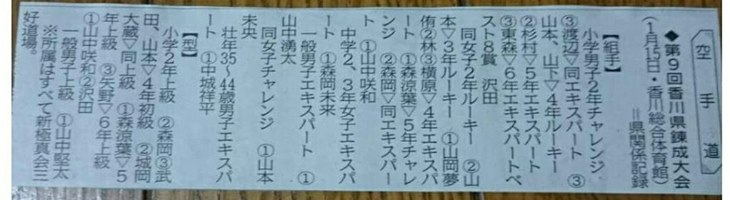 空手道
◆第9回香川県錬成大会
(1月15日・香川総合体育館)
=県関係記録
【組手】
小学男子2年チャレンジ
③渡辺▽同エキスパート ③
山本、山下▽4年ルーキー
②杉村▽5年エキスパート
③東森▽6年エキスパートベ
スト8賞 沢田
同女子2年ルーキー ②山
本▽3年ルーキー ①山岡夢
侑②林③横原▽4年エキスパ
ート ①森涼葉▽5年チャレ
ンジ ②森岡▽同エキスパー
ト ①山中咲和
中学2、3年女子エキスパ
ート ①森岡未来
一般男子エキスパート ①
山中湧太
同女子チャレンジ ①山本
未央
壮年35〜44歳男子エキスパ
ート ①中城祥平
【型】
小学2年上級 ②森岡③武
田、山本▽4年初級 ②城岡
大蔵▽同上級 ①森涼葉▽5
年上級 ③矢野▽6年上級
①山中咲和②沢田
一般男子上級 ①山中堅太
※所属はすべて新極真会三
好道場。